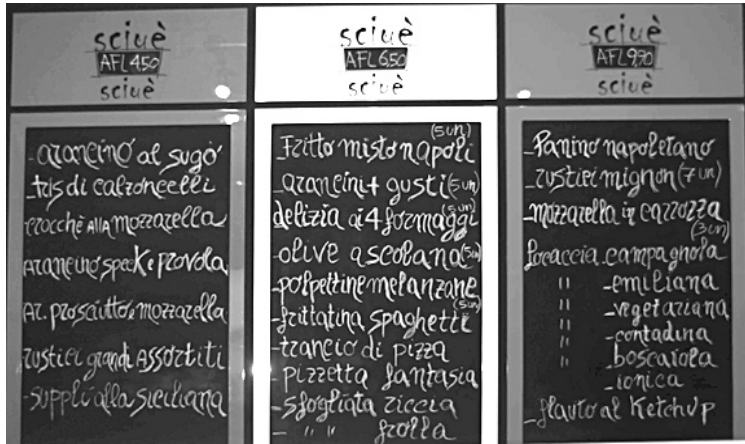 sciuè
AFL 4,50
sciuè
- arancino al sugo
- tris di calzoncelli
crocchè alla mozzarella
Arancino speck e provola
Ar. prosciutto e mozzarella
rustici grandi assortiti
- supplì alla siciliana
sciuè
AFL 6,50
sciuè
- Fritto misto napoli (5 un)
- arancini 4 gusti (5 un)
delizia ai 4 formaggi (5 un)
- olive ascolana (5un)
- polpettine melanzane
- frittatina spaghetti (5 un)
- trancio di pizza
- pizzetta fantasia
- sfogliata riccia
- " " frolla
sciuè
AFL 9,90
sciuè
- Panino napoletano
- rustici mignon (7 un)
- mozzarella in carrozza (3un)
focaccia campagnola
" - emiliana
" - vegetariana
" - contadina
" - boscaiola
- ionica
- flauto al Ketchup